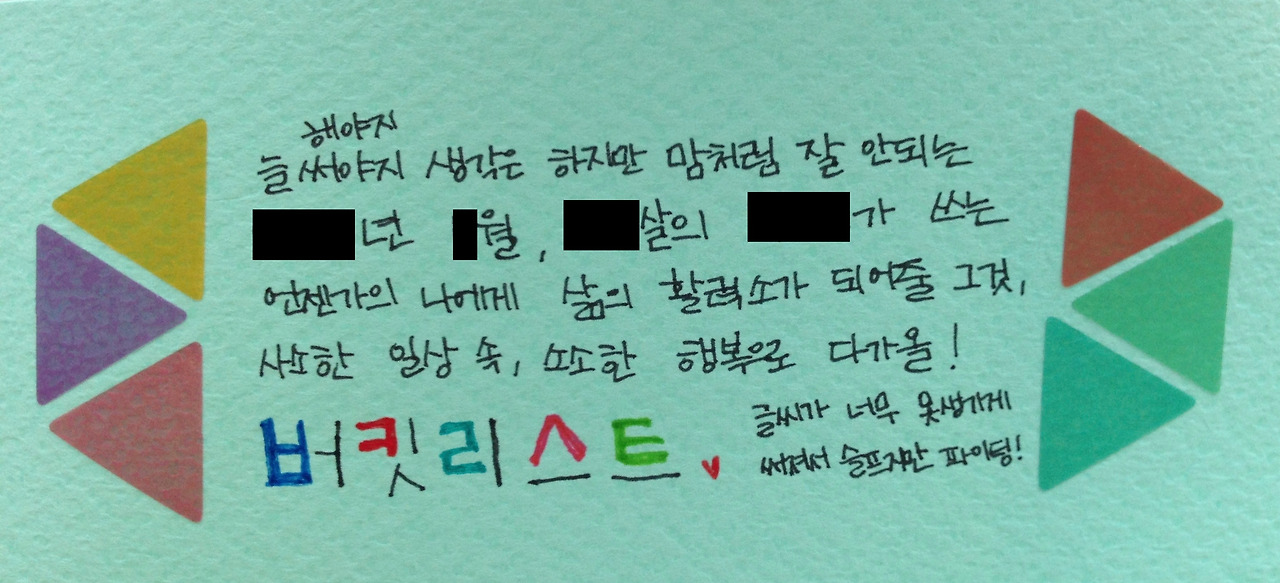 해야지
늘 써야지 생각은 하지만 맘처럼 잘 안되는
년 월, 살의 가 쓰는
언젠가의 나에게 삶의 활력소가 되어줄 그것,
사소한 일상 속, 소소한 행복으로 다가올!
버킷리스트
글씨가 너무 못생기게
써져서 슬프지만 파이팅!